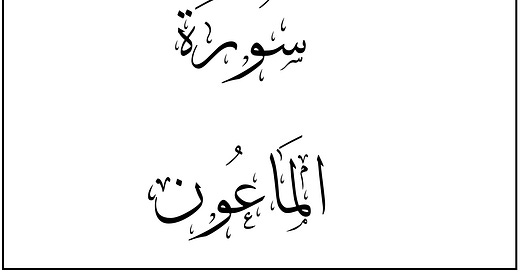 سُورَة
المَاعُون